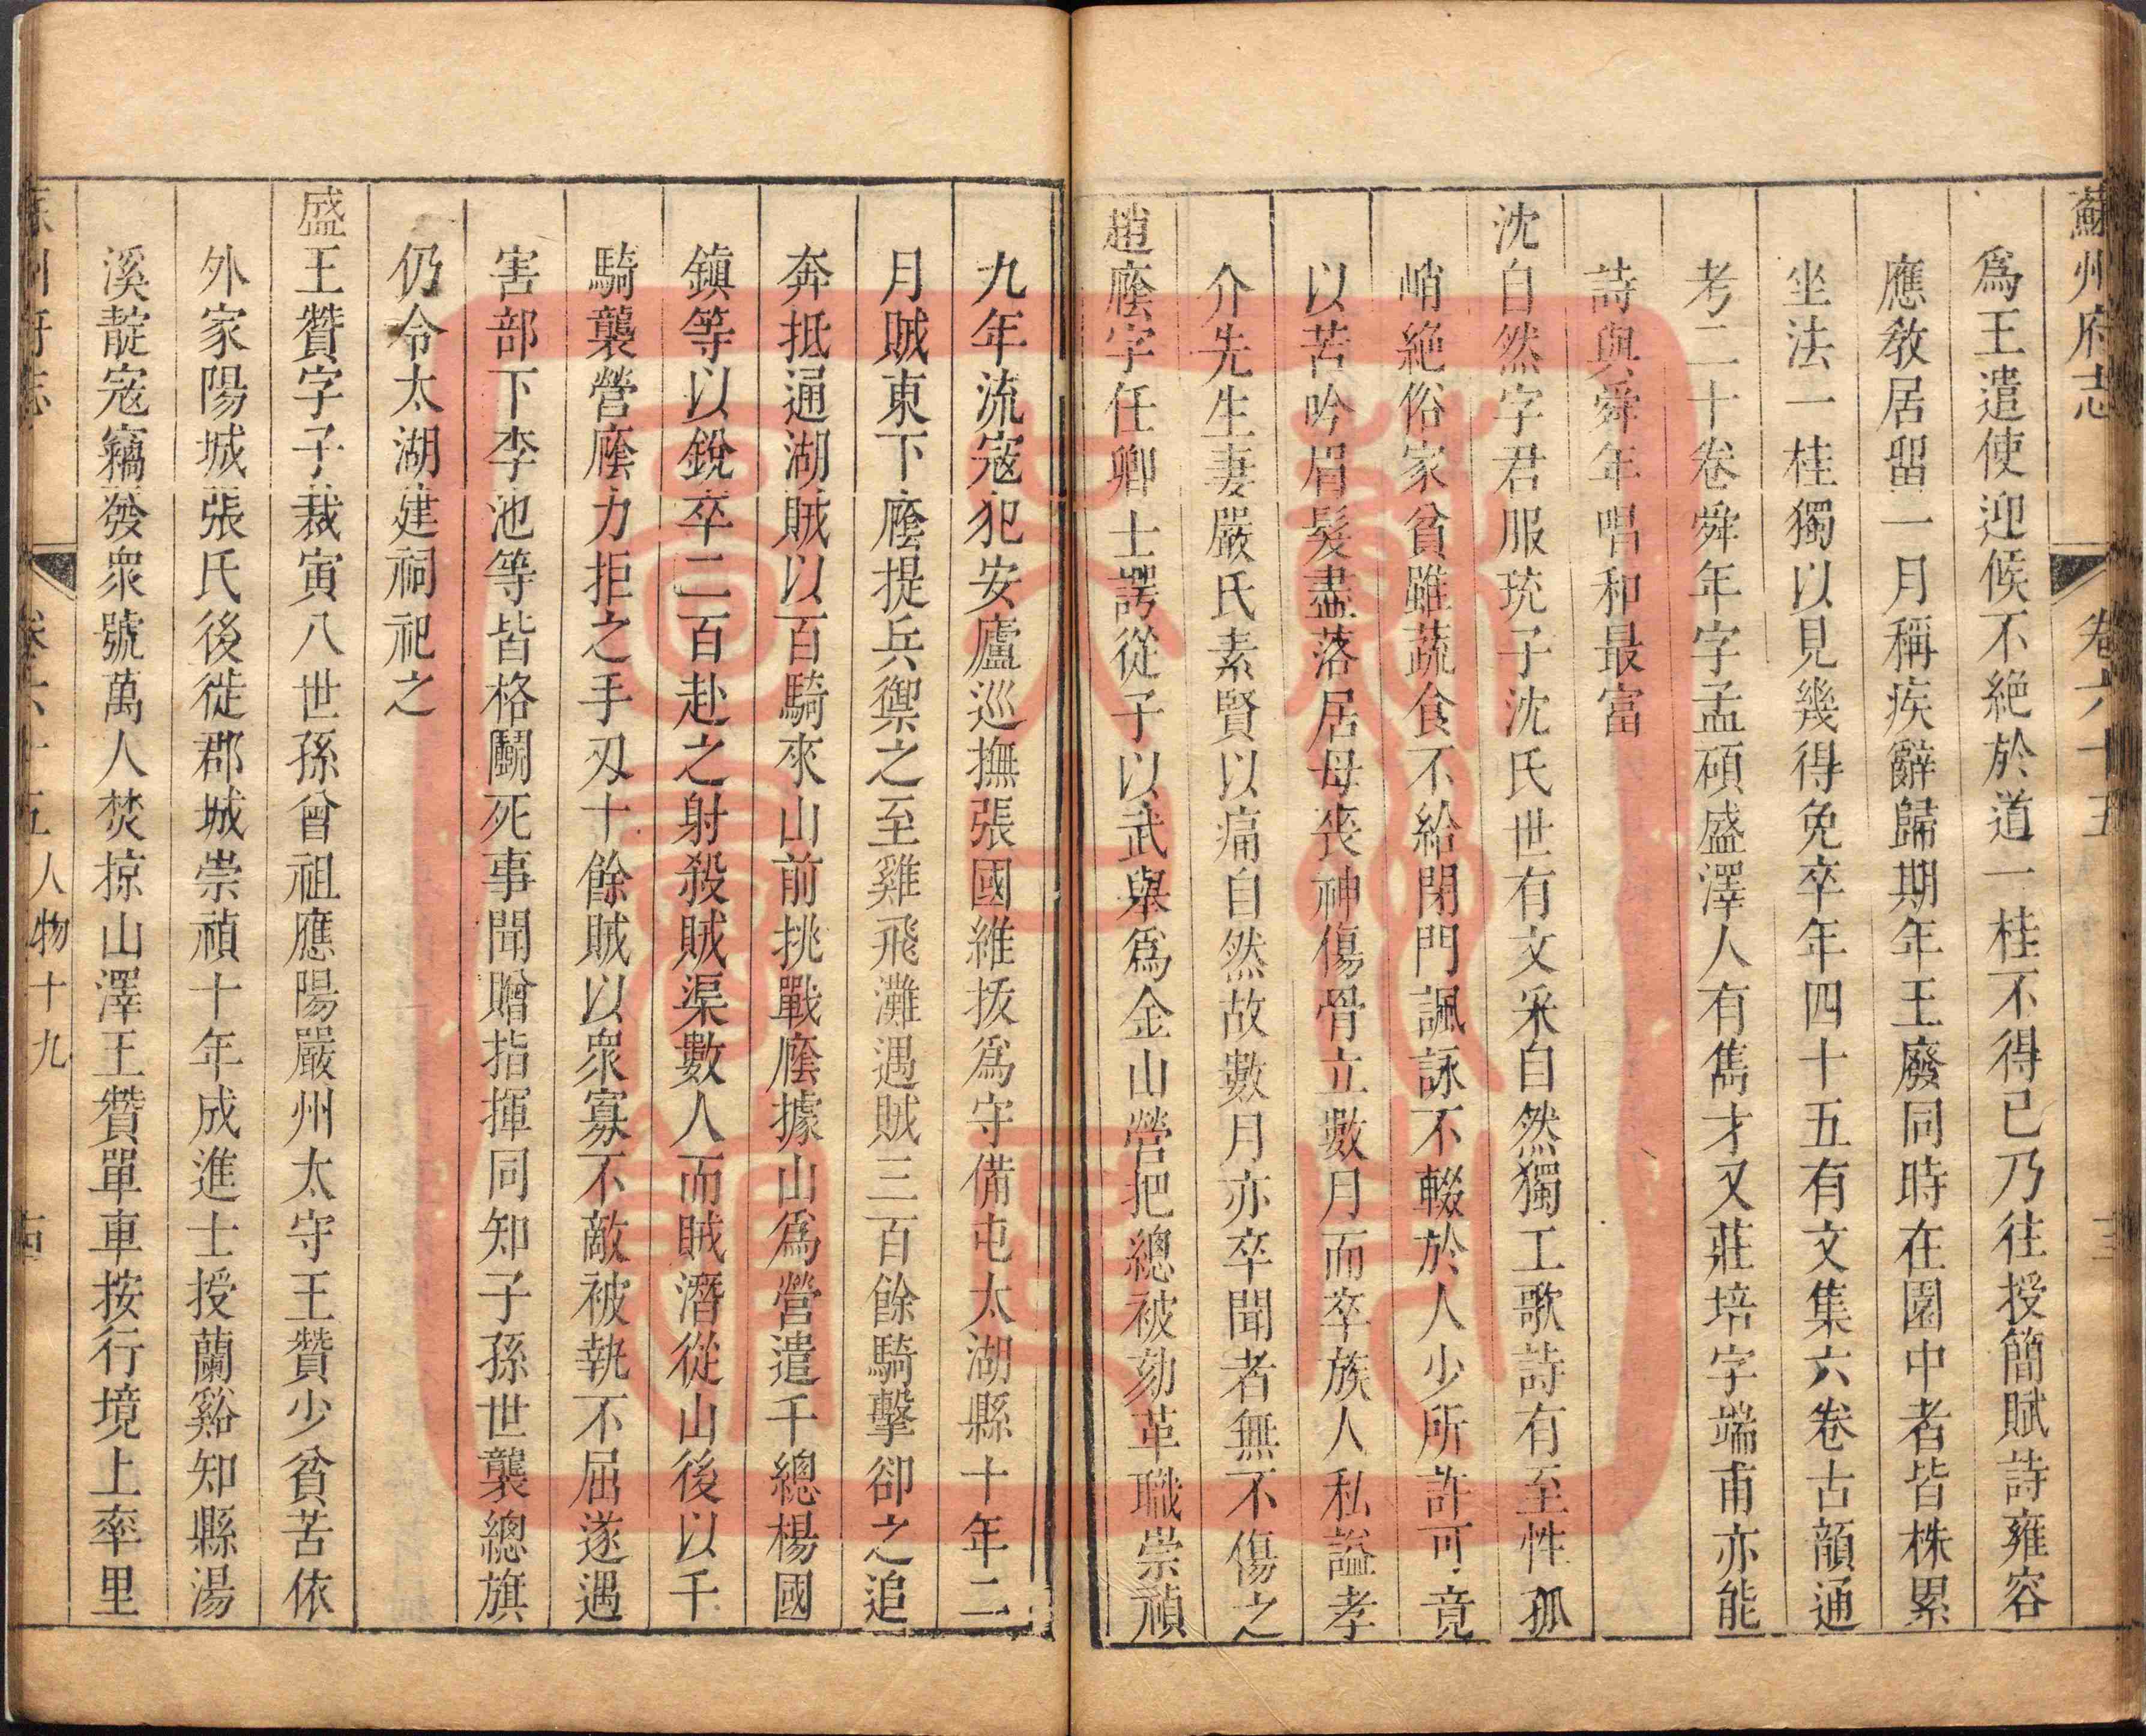 蘇州府志 卷六十五 十三
爲王遣使迎候不絶於道一桂不得已乃往授簡賦詩雍容
應敎居畱一月稱疾辭歸期年王廢同時在園中者皆株累
坐法一桂獨以見幾得免卒年四十五有文集六卷古韻通
考二十卷舜年字孟碩盛澤人有雋才又莊培字端甫亦能
詩與舜年唱和最富
沈自然字君服珫子沈氏世有文采自然獨工歌詩有至性孤
峭絶俗家貧雖蔬食不給閉門諷詠不輟於人少所許可竟
以苦吟眉髮盡落居母喪神傷骨立數月而卒族人私謚孝
介先生妻嚴氏素賢以痛自然故數月亦卒聞者無不傷之
趙廕字任卿士諤從子以武舉爲金山營把總被劾革職崇禎
九年流寇犯安廬巡撫張國維拔爲守備屯太湖縣十年二
月賊東下廕提兵禦之至雞飛灘遇賊三百餘騎擊卻之追
奔抵通湖賊以百騎來山前挑戰廕據山爲營遣千總楊國
鎭等以銳卒二百赴之射殺賊渠數人而賊潛從山後以千
騎襲營廕力拒之手刃十餘賊以衆寡不敵被執不屈遂遇
害部下李池等皆格鬭死事聞贈指揮同知子孫世襲總旗
仍令太湖建祠祀之
盛王贊字子裁寅八世孫曾祖應陽嚴州太守王贊少貧苦依
外家陽城張氏後徙郡城崇禎十年成進士授蘭谿知縣湯
溪靛寇竊發衆號萬人焚掠山澤王贊單車按行境上率里
蘇州府志 卷六十五 人物十九 十四